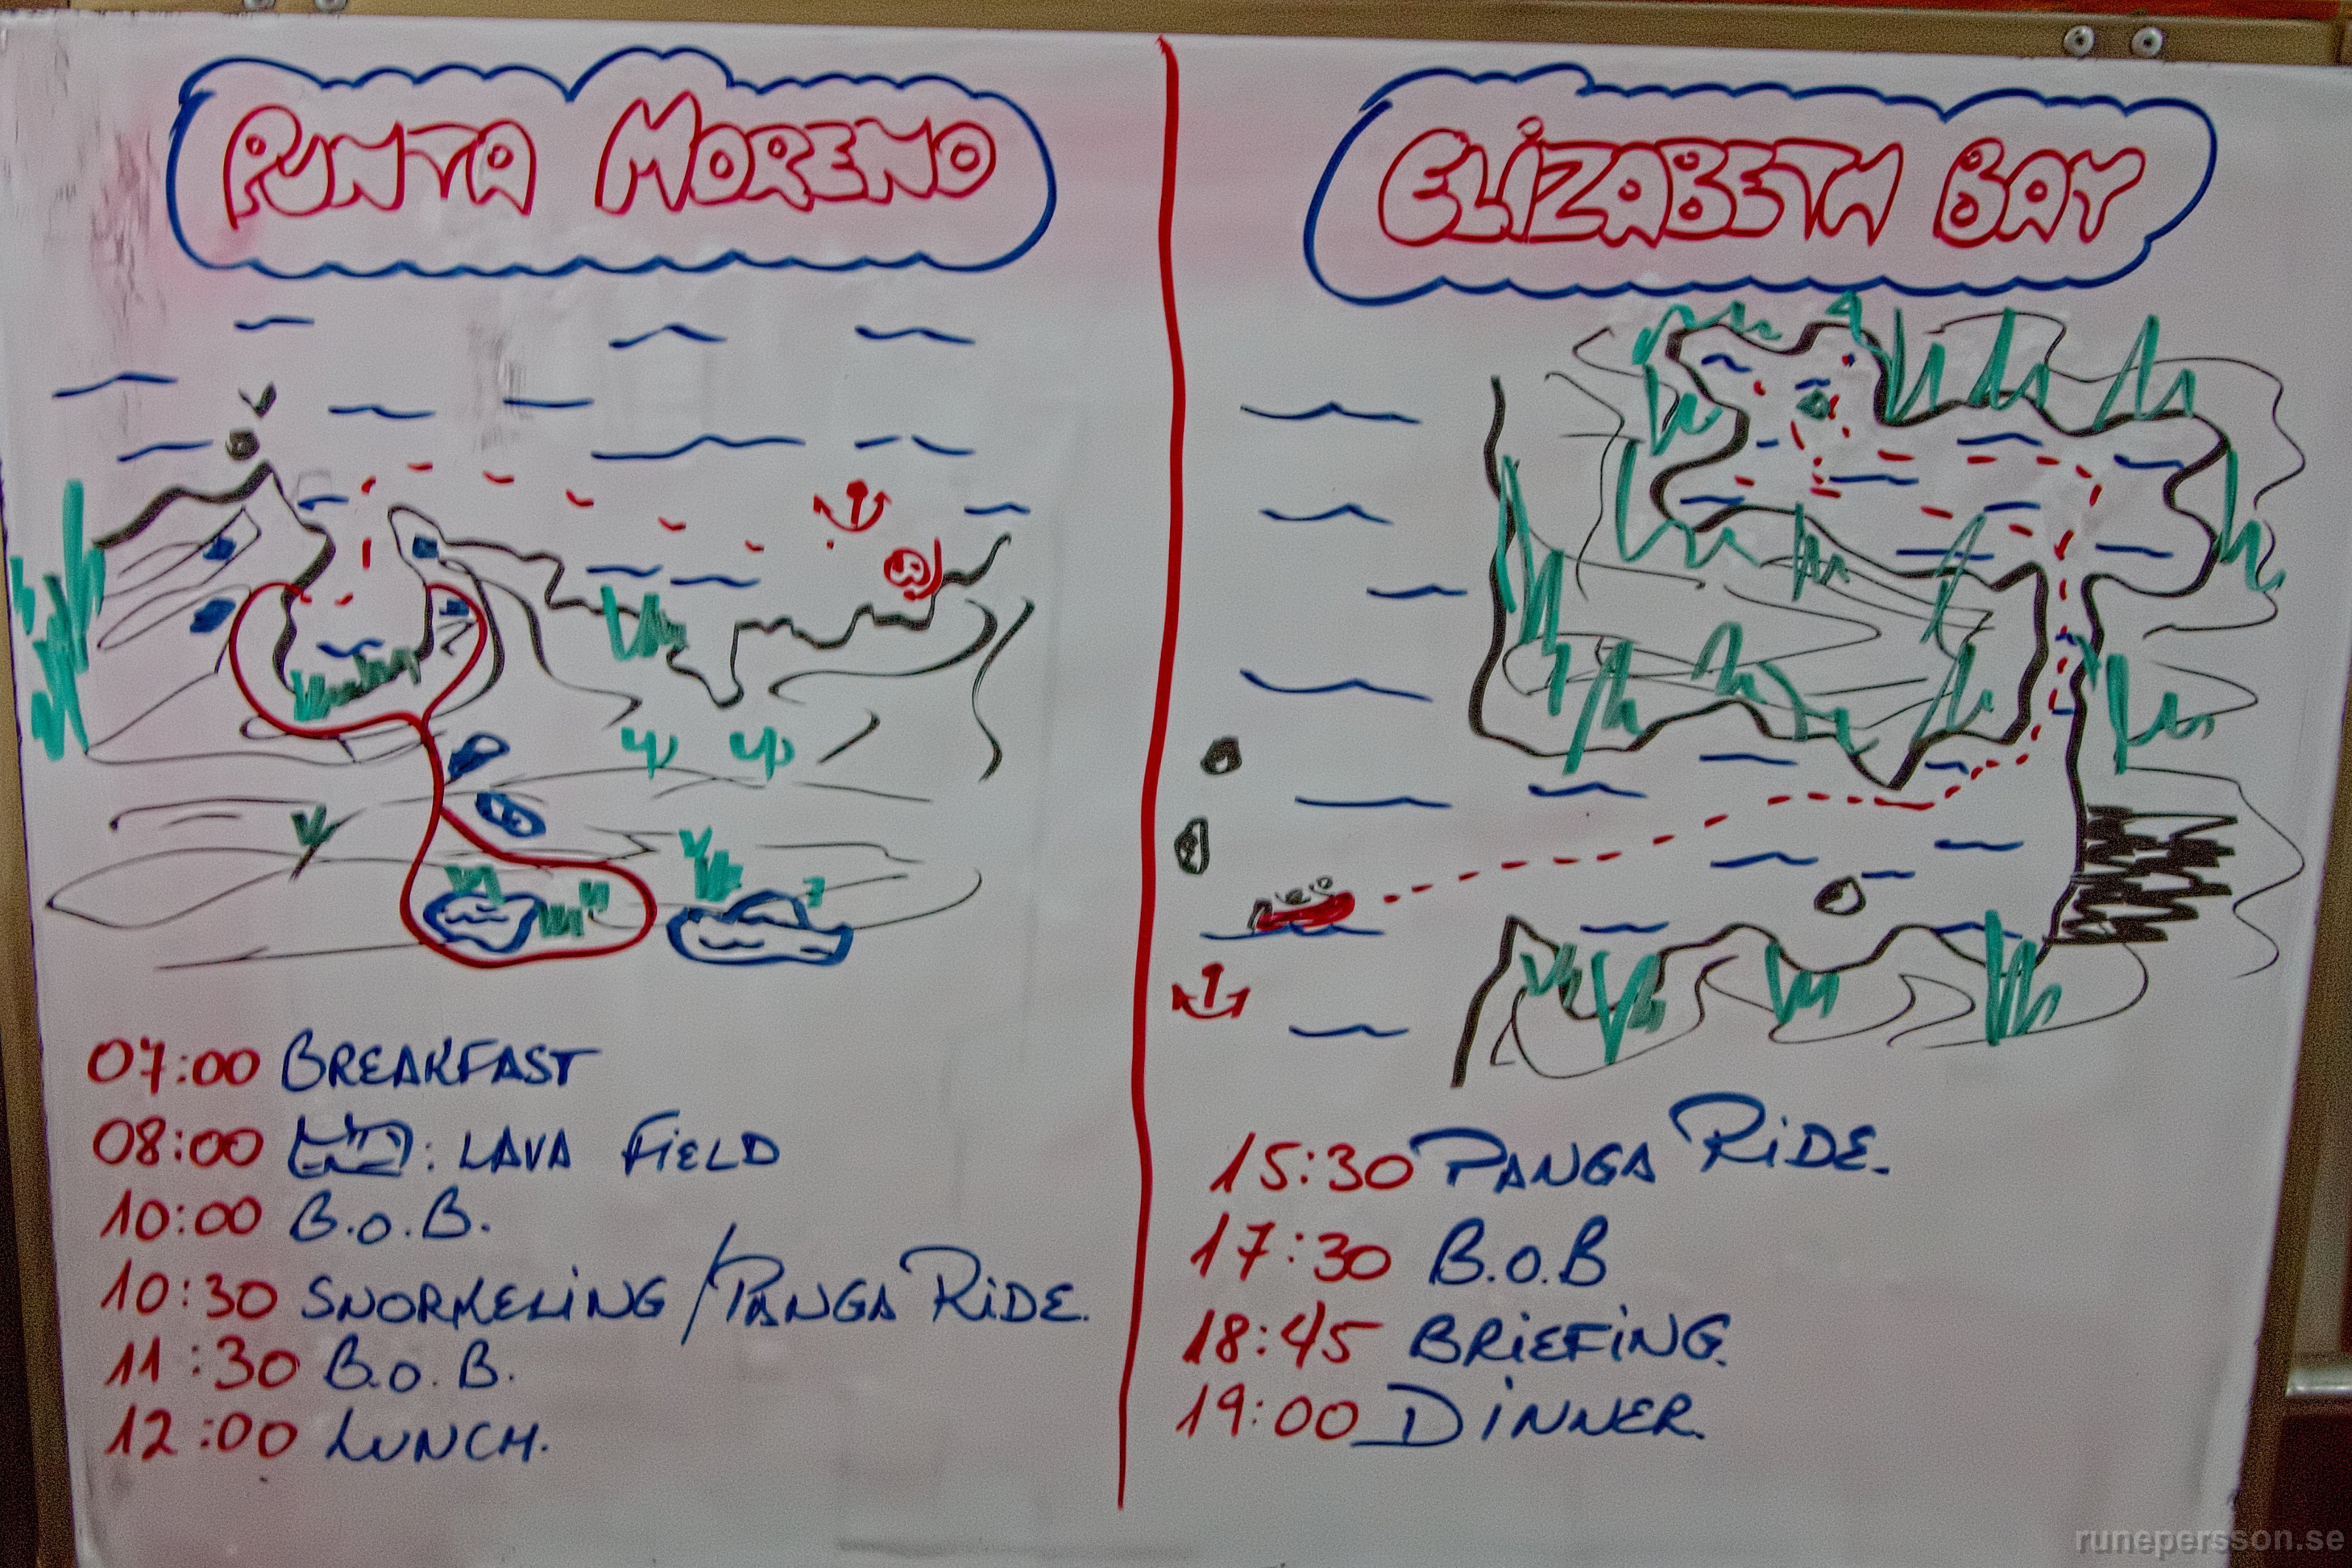 PUNTA MORENO
07:00 BREAKFAST
08:00 : LAVA FIELD
10:00 B.O.B.
10:30 SNORKELING / PANGA RIDE.
11:30 B.O.B.
12:00 LUNCH.
ELIZABETH BAY
15:30 PANGA RIDE.
17:30 B.O.B
18:45 BRIEFING.
19:00 DINNER.
runepersson.se